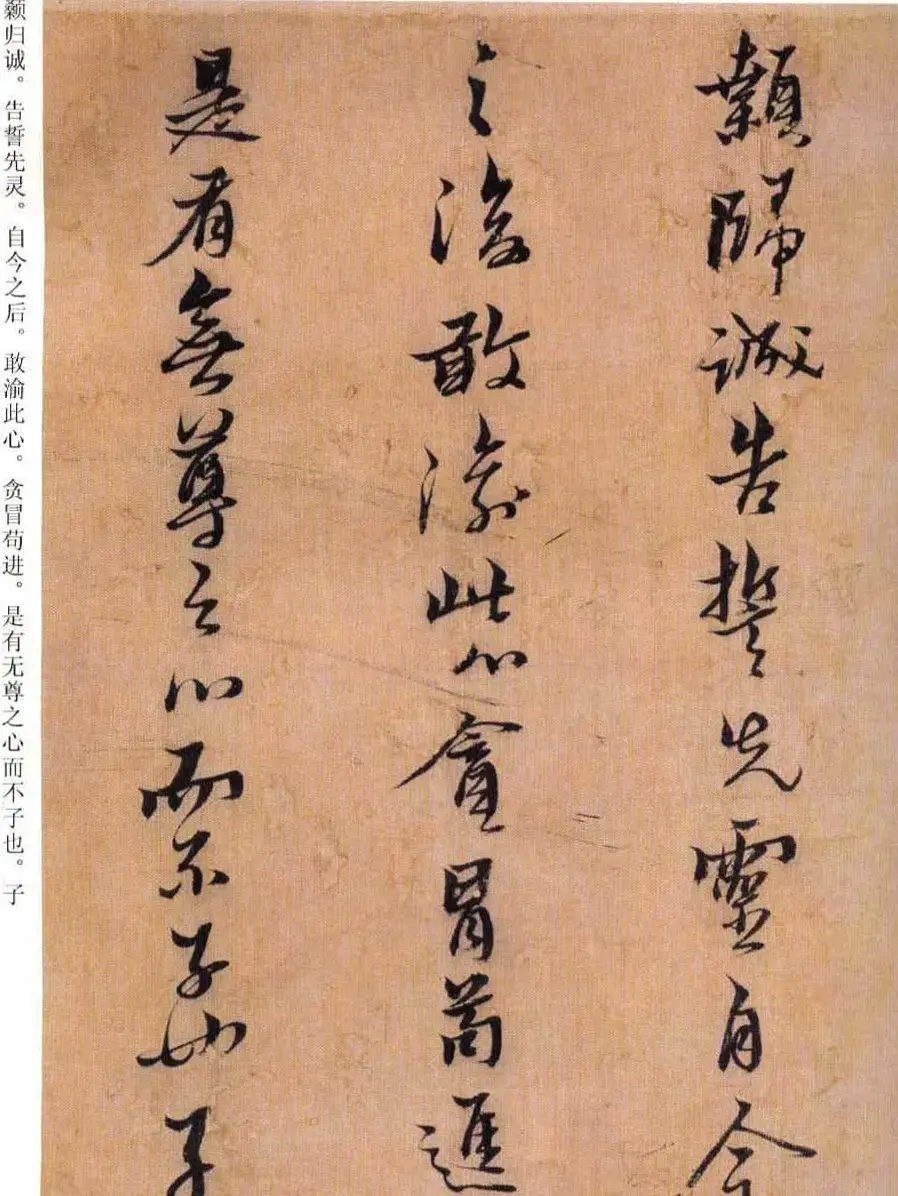 颡归诚。告誓先灵。自今之后。敢渝此心。贪冒苟进。是有无尊之心而不子也。子
顙歸誠告誓先靈自今
之後敢渝此心貪冒苟進
是有無尊之心而不子也子